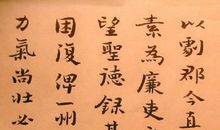 以劇郡今直
素為廉吏
望聖德録其
困復俾一州
力氣尚壯必